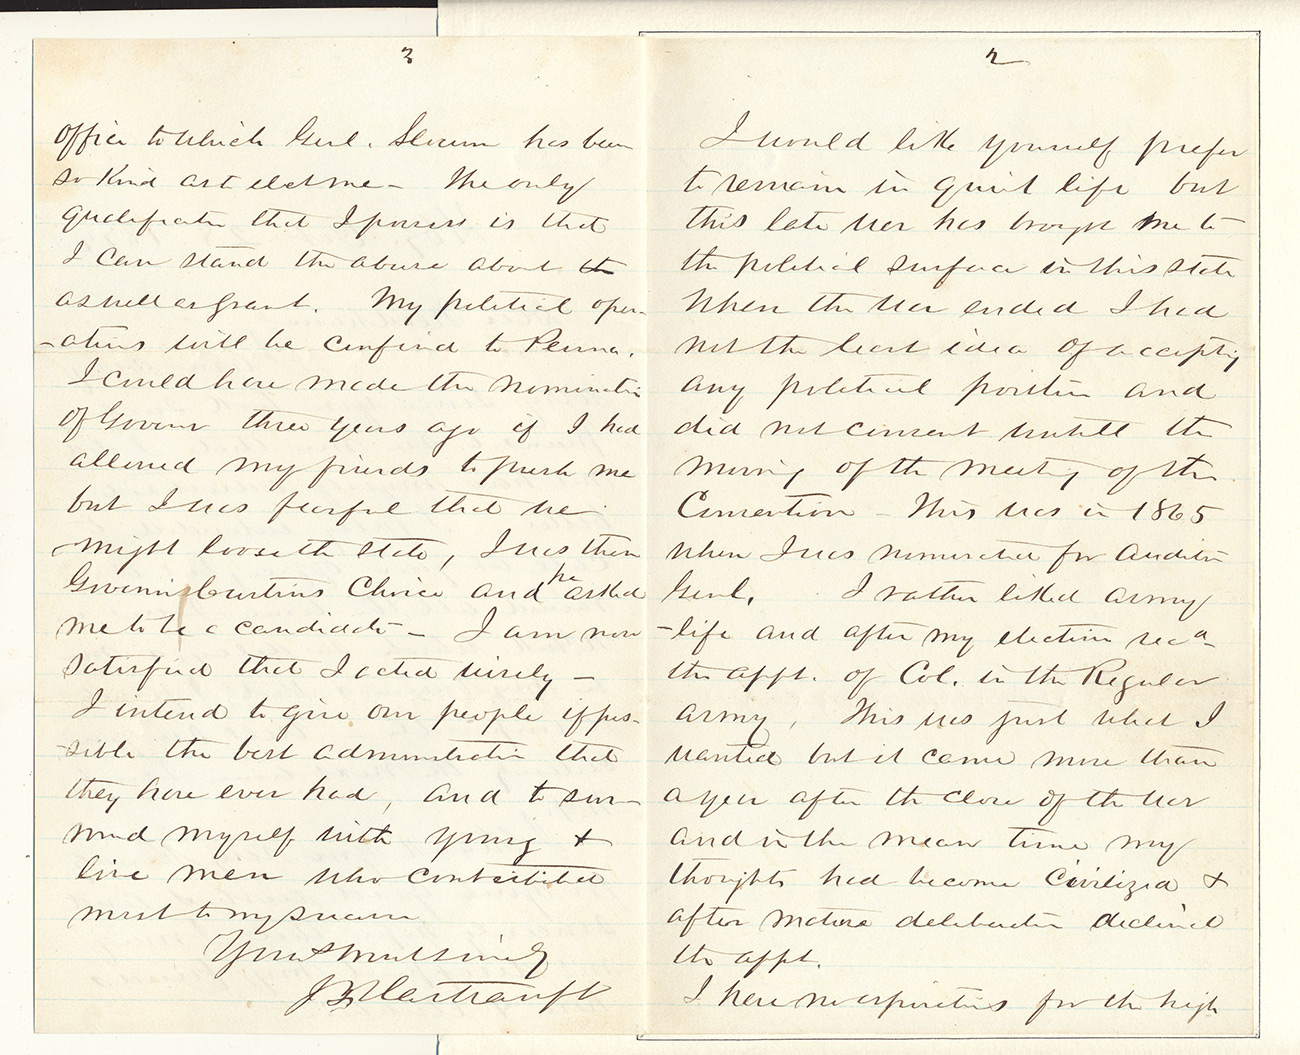 2
I would like yourself prefer
to remain in quiet life but
this late war has brought me to
the political surface in this state
When the war ended I had
not the least idea of accepting
any political position and
did not consent untill the
morning of the meeting of the
Convention - This was in 1865
when I was nominated for Auditor
Genl. I rather liked army
-life and after my election recd
the appt. of Col. in the Regular
army, This was just what I
wanted but it came more than
a year after the close of the war
and in the mean time my
thoughts had become Civilized &
after mature deliberation declined
the appt.
I have no aspirations for the high
3
office to which Genl. Slocum has been
so kind as to elect me - The only
qualification that I possess is that
I can stand the abuse about
as well as Grant. My political oper-
-ations will be confined to Penna.
I could have made the nomination
of Govenor three years ago if I had
allowed my friends to push me
but I was fearful that we
might loose the state, I was then
Govenor Curtins Choice and he asked
me to be a candidate - I am now
satisfied that I acted wisely -
I intend to give our people if pos-
-sible the best administration that
they have ever had, and to sur-
round myself with young &
live men who contributed
most to my success
Yours most sincerely
J F Hartranft